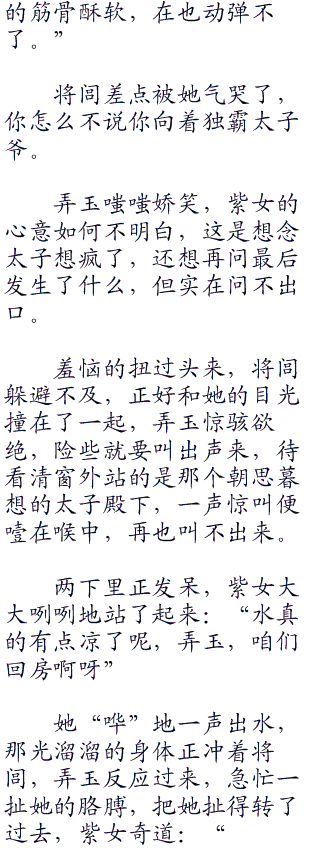 的筋骨酥软，在也动弹不
了。”
将闾差点被她气哭了，
你怎么不说你向着独霸太子
爷。
弄玉嗤嗤娇笑，紫女的
心意如何不明白，这是想念
太子想疯了，还想再问最后
发生了什么，但实在问不出
口。
羞恼的扭过头来，将闾
躲避不及，正好和她的目光
撞在了一起，弄玉惊骇欲
绝，险些就要叫出声来，待
看清窗外站的是那个朝思暮
想的太子殿下，一声惊叫便
噎在喉中，再也叫不出来。
两下里正发呆，紫女大
大咧咧地站了起来：“水真
的有点凉了呢，弄玉，咱们
回房啊呀”
她“哗”地一声出水，
那光溜溜的身体正冲着将
闾，弄玉反应过来，急忙一
扯她的胳膊，把她扯得转了
过去，紫女奇道：“